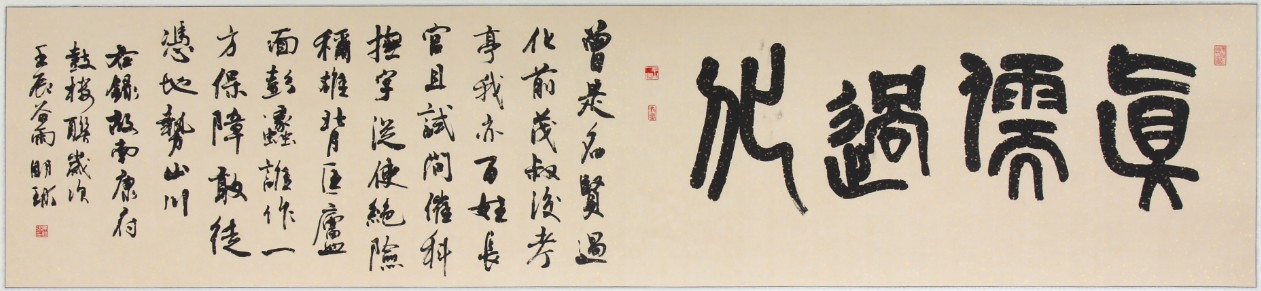 眞儒過化
曾是名賢過
化前茂叔後考
亭我亦百姓長
官且試問催科
撫字從使絕險
稱雄背匡廬
面彭蠡誰作一
方保障敢徒
憑地勢山川
右錄故南康府
鼓樓聯歲次
壬辰谷雨明